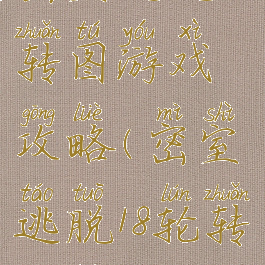 zhuǎn tú yóu xì
转图游戏
gōng lüè mì shì
攻略(密室
táo tuō lún zhuǎn
逃脱18轮转